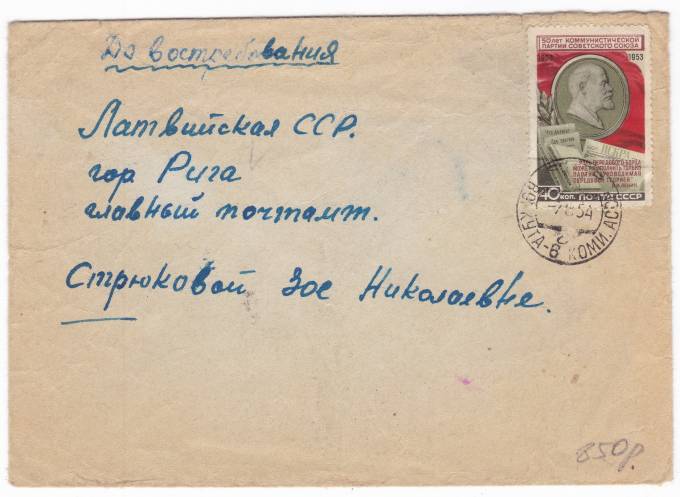 До востребования
Латвийская ССР.
гор Рига
главный почтамт.
Стрюковой Зое Николаевне.
50 ЛЕТ КОММУНИСТИЧЕСКОЙ
ПАРТИИ СОВЕТСКОГО СОЮЗА
1953
ИСКРА
40 КОП. ПОЧТА СССР
54
КОМИ. АССР
850р.